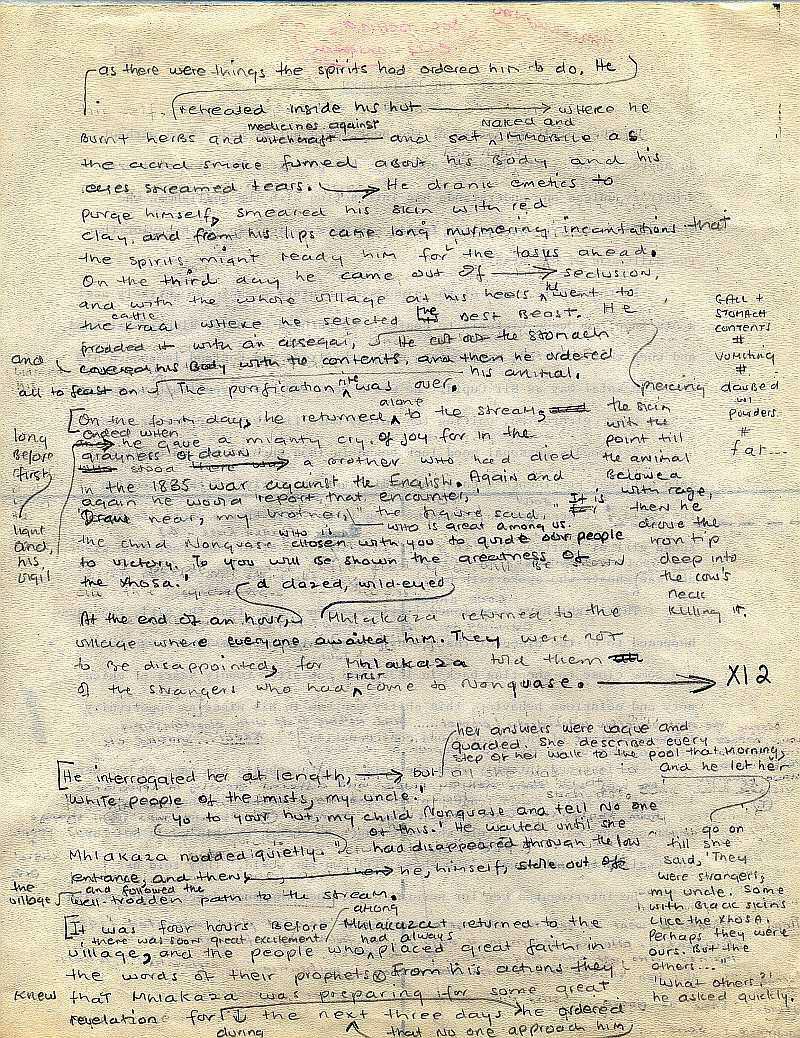 as there were things the spirits had ordered him to do. He
retreated inside his hut where he
medicines against naked and
burnt herbs and witchcraft and sat immobile as
the acrid smoke fumed about his body and his
eyes streamed tears. He drank emetics to
purge himself, smeared his skin with red
clay, and from his lips came long murmering incantations that
the spirits might ready him for the tasks ahead.
On the third day he came out of seclusion,
and with the whole village at his heels went to
cattle the
the kraal where he selected his best beast. He
prodded it with an assegai, He cut out the stomach
and covered his body with the contents, and then he ordered
all to feast on his animal.
The purification rite was over.
alone
On the fourth day, he returned to the stream,
ended when
he gave a mighty cry of joy for in the
grayness of dawn
stood there a brother who had died
in the 1835 war against the English. Again and
again he would report that encounter,
'Draw near, my brother,' the figure said, "It is
who is great among us.
the child Nonquase chosen with you to guide our people
to victory. To you will be shown the greatness of
the Xhosa.'
long
before
first
light
and,
his,
vigil
piercing
the skin
with the
point till
the animal
bellowed
with rage,
then he
drove the
iron tip
deep into
the cow's
neck
killing it.
GALL +
STOMACH
CONTENTS
#
VOMITING
#
daubed
w/
powders.
#
fat...
a dazed, wild-eyed
At the end of an hour, Mhlakaza returned to the
village where everyone awaited him. They were not
to be disappointed, for Mhlakaza told them
first
of the strangers who had come to Nonquase. X12
her answers were vague and
guarded. She described every
step of her walk to the pool that morning,
and he let her
He interrogated her at length, but
'White people of the mists, my uncle.'
'Go to your hut, my child Nonquase and tell no one
of this.' He waited until she
Mhlakaza nodded quietly. had disappeared through the low
entrance, and then he, himself, stole out of
the and followed the
village well-trodden path to the stream.
go on
till she
said, 'They
were strangers,
my uncle. Some
with black skins
like the Xhosa,
Perhaps they were
ours. But the
others..."
'What others?'
he asked quickly.
It was four hours before Mhlakaza returned to the
there was soon great excitement among had always
village, and the people who placed great faith in
the words of their prophets. From his actions they
knew that Mhlakaza was preparing for some great
revelation for the next three days he ordered
during that no one approach him